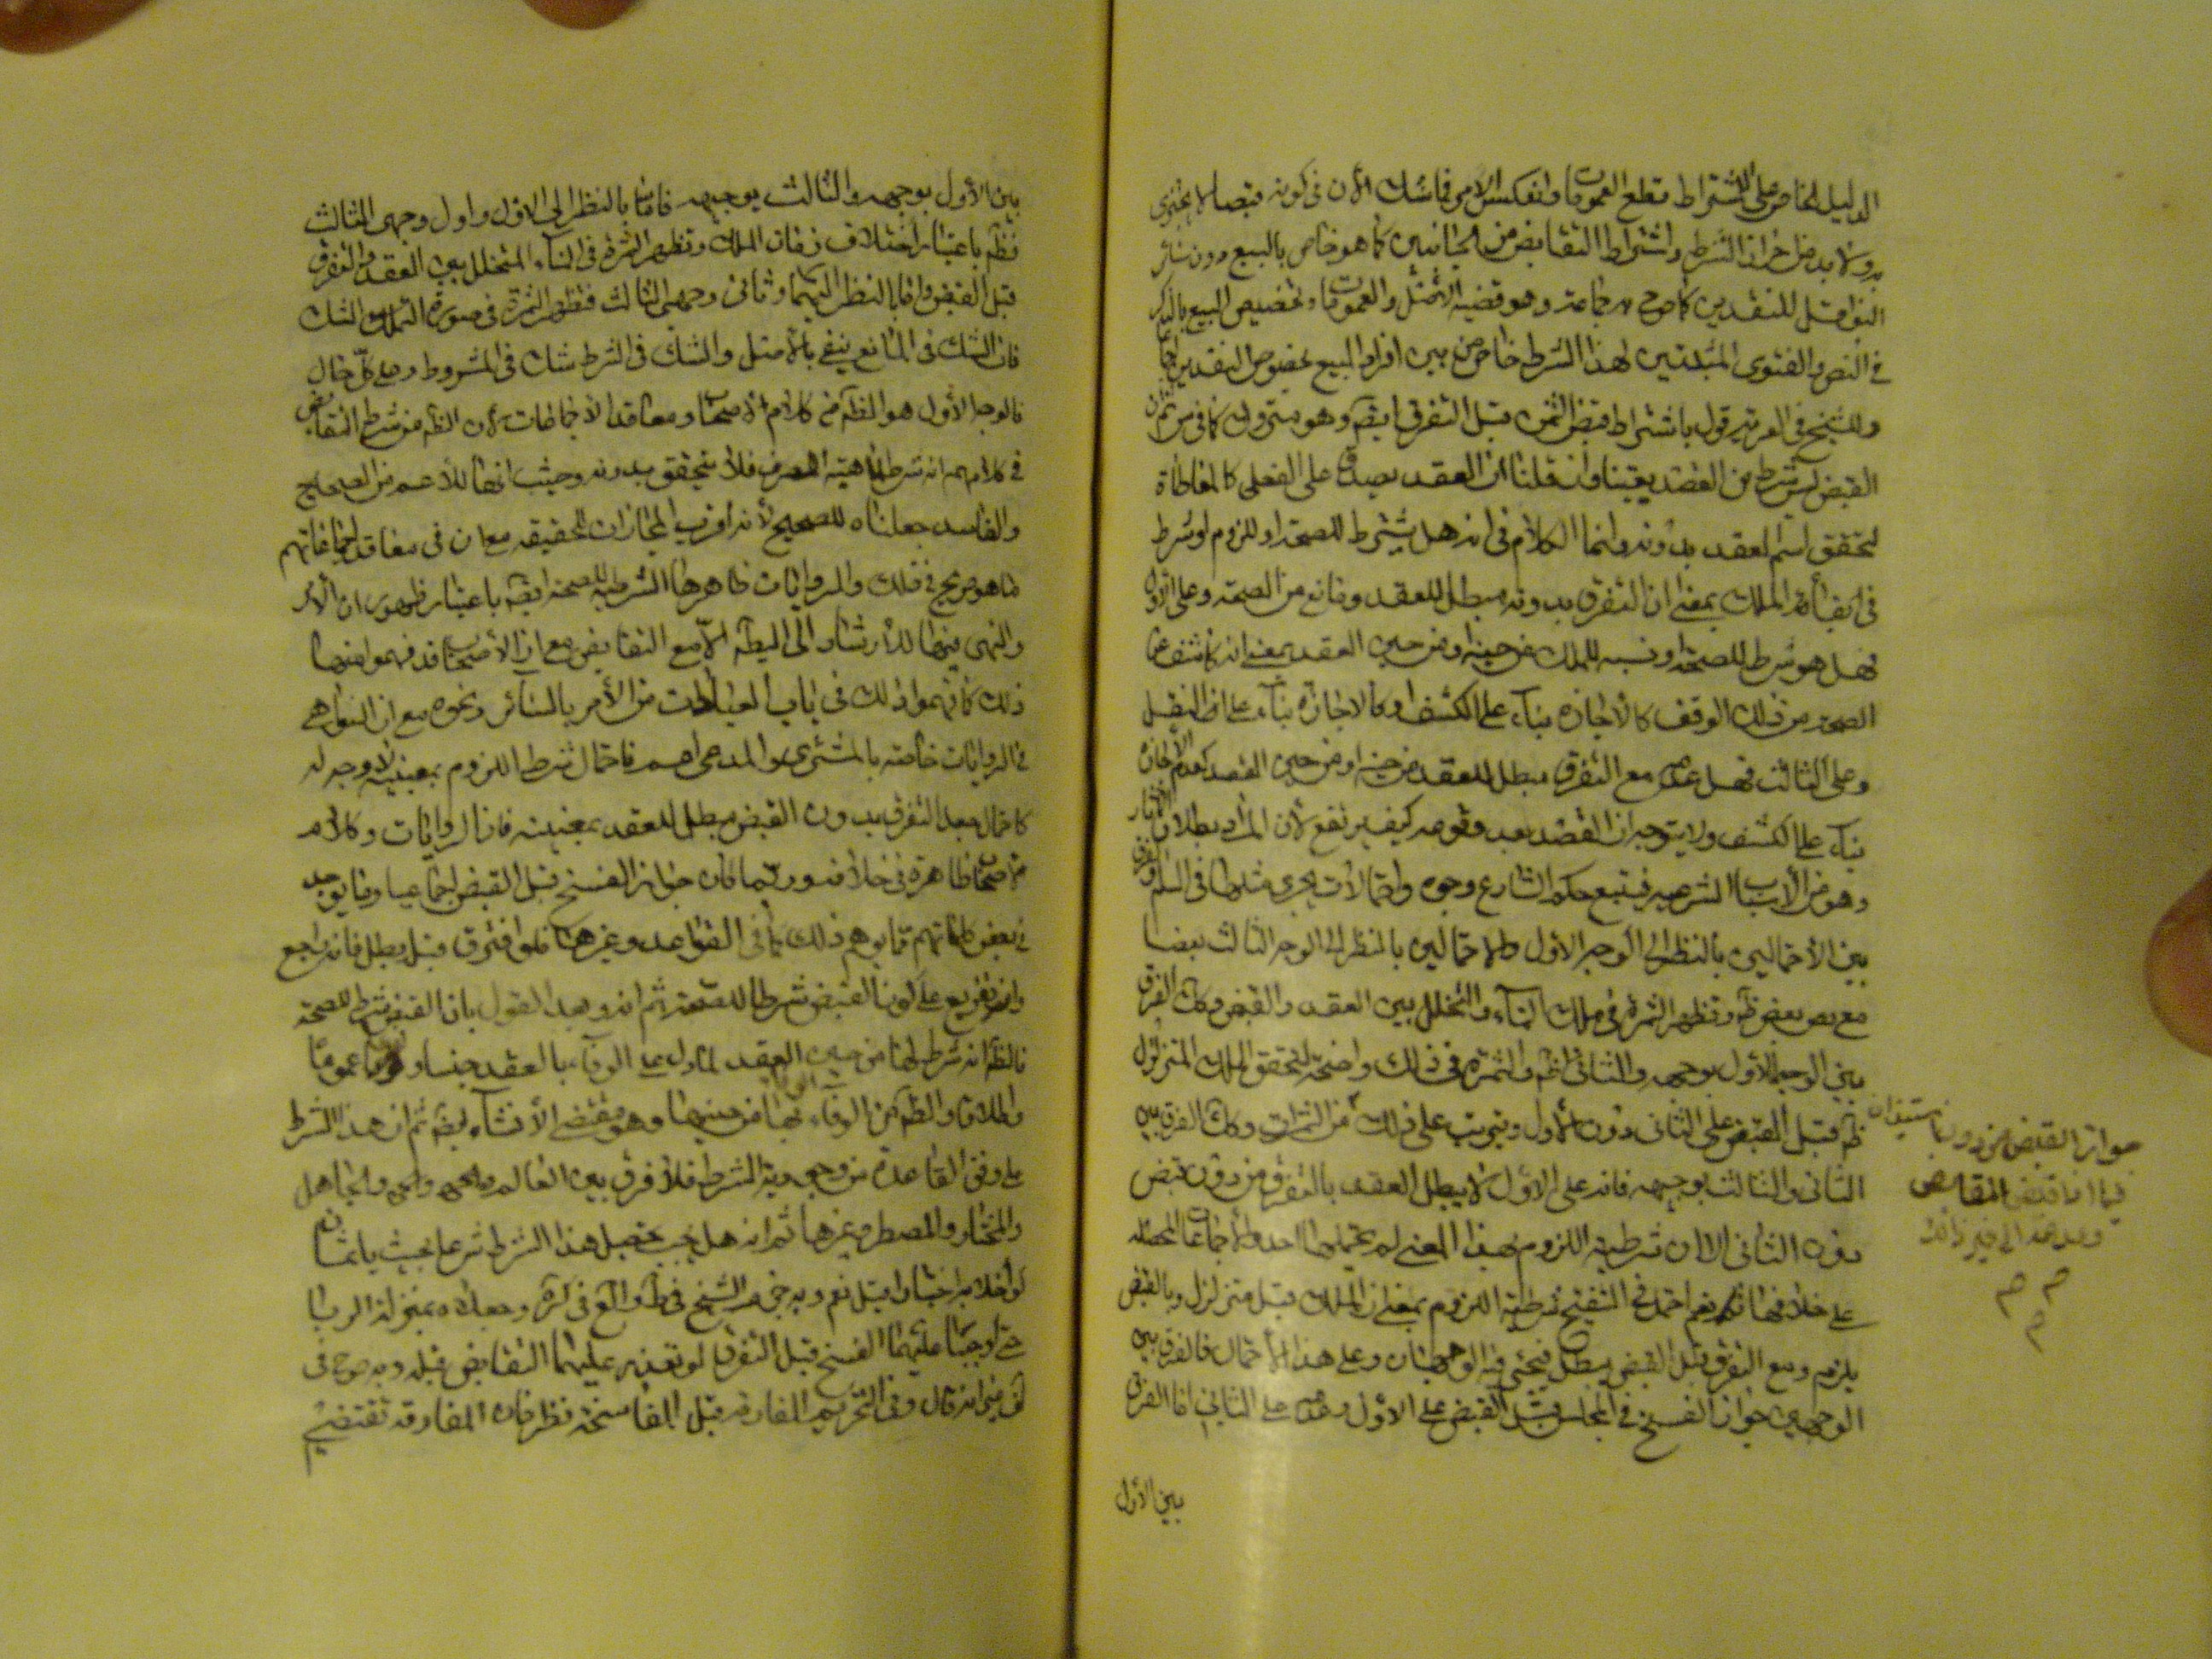 الدليل الخاص على الاشتراط قطع العمومات وانعكس الامر فما شك الآن في كونه قبضا لا يجتزى
به ولا بد من احراز الشرط واشتراط التقابض من الجانبين كما هو خاص بالبيع دون سائر
النواقل للنقدين كما صرح به جماعة وهو قضية الاصل والعمومات وتخصيص البيع بالذكر
في النص والفتوى المثبتين لهذا الشرط خاص من بين افراد البيع بخصوص النقدين
وللشيخ في قول باشتراط قبض الثمن قبل التفرق ايضا وهو متروك كما في س ثم ان
القبض ليس شرط من العقد يقينا وان قلنا ان العقد يصدق على الفعلي كالمعاطاة
لتحقق اسم العقد بدونه وانما الكلام في انه هل يشترط للصحة او للزوم او شرط
في بقاء الملك بمعنى ان التفرق بدونه مبطل للعقد ومانع من الصحة وعلى الاول
فهل هو شرط للصحة ونسبه للملك من حينه او من حين العقد بمعنى انه كاشف عن
الصحة من ذلك الوقت كالاجازة بناء على الكشف او كالاجازة بناء على النقل
وعلى الثالث فهل عدمه مع التفرق مبطل للعقد من حينه او من حين العقد كعدم الاجازة
بناء على الكشف ولا يتوجه ان العقد بعد وقوعه كيف يرتفع لأن المراد بطلان الآثار
وهو من الأسباب الشرعية فيتبع حكم الشارع وجوه واحتمالات يجري مثلها في السلم والفرق
بين الاحتمالين بالنظر الى الوجه الأول كالاحتمالين بالنظر الى الوجه الثالث بعضا
مع بعض ظ وتظهر الثمرة في ملك النماء والتخلل بين العقد والقبض وكان الفرق
بين الوجه الأول بوجهيه والثاني ظ والثمرة في ذلك واضحة لتحقق الملك المتزلزل
ظ قبل القبض على الثاني دون الأول ويترتب على ذلك من الثمرات وكان الفرق بين
الثاني والثالث بوجهيه فانه على الاول لا يبطل العقد بالتفرق من دون قبض
دون الثاني الا ان شرطية اللزوم بهذا المعنى لم يحتملها احد والاجماعات المحصلة
على خلافها نعم احتمل في التنقيح شرطية اللزوم بمعنى ان الملك قبله متزلزل وبالقبض
يلزم ومع التفرق قبل القبض يبطل فيجئ فيه الوجهان وعلى هذا الاحتمال فالفرق بين
الوجهين جواز الفسخ في المجلس قبل القبض على الاول وعدمه على الثاني اما الفرق
بين الأول
جواز القبض من دون استيذان
فيما اذا قبض المقابض
وعدمه الى غير ذلك
م م
م
بين الأول بوجهيه والثالث بوجهيه فاما بالنظر الى الاول واول وجهي الثالث
فظ باعتبار اختلاف زمان الملك وتظهر الثمرة في النماء المتخلل بين العقد والتفرق
قبل القبض واما بالنظر اليهما وثاني وجهي الثالث فتظهر الثمرة في صورة الشك
فان الشك في المانع ينفى بالأصل والشك في الشرط شك في المشروط وعلى كل حال
فالوجه الأول هو الظ من كلام الاصحاب ومعاقد الاجماعات لأن الظ من شرط التقابض
في كلامهم انه شرط لماهية الصرف فلا يتحقق بدونه وحيث انها للأعم من الصحيح
والفاسد جعلناه للصحيح لأنه اقرب المجازات للحقيقة مع ان في معاقد اجماعاتهم
ما هو صريح في ذلك والروايات ظاهرها الشرطية للصحة ايضا باعتبار ظهور ان الأمر
والنهي فيها للأرشاد الى البيع الا مع التقابض مع ان الاصحاب قد فهموا منها
ذلك كما فهموا ذلك في باب العبادات من الأمر بالستر ونحوه مع ان النواهي
في الروايات خاصة بالمشتري والمدعى اعم فاحتمال شرط اللزوم بمعنييه لا وجه له
كاحتمال جعل التفرق بدون القبض مبطل للعقد بمعنييه فان الروايات وكلام
الاصحاب ظاهرة في خلافه وربما كان جواز الفسخ قبل القبض اجماعيا وما يوجد
في بعض كلماتهم مما يوهم ذلك كما في القواعد وغيرها فلو افترق قبله بطل فانه راجع
وانه تفريع على كون القبض شرطا للصحة ثم انه وبعد القول بأن القبض شرط للصحة
فالظ انه شرط لها من حين العقد لما دل على الوفاء بالعقد جنسا وعموما
واطلاقا والظ من الوفاء بها من حينها وهو مقتضى الانشاء ايضا ثم ان هذا الشرط
على وفق القاعدة من وجودية الشرط فلا فرق بين العالم والجاهل
والمختار والمضطر وغيرها ثم انه هل يجب تحصيل هذا الشرط شرعا بحيث ياثمان
لو اخلا به اختيارا قيل نعم وبه جزم الشيخ في ط والع في كره وجعلاه بمنزلة الربا
حتى اوجبا عليهما الفسخ قبل التفرق لو تعذر عليهما التقابض قبله وبه صرح في
انه قال وفي التحريم المفارقة قبل المفاسخة نظر فان المفارقة تقتضي